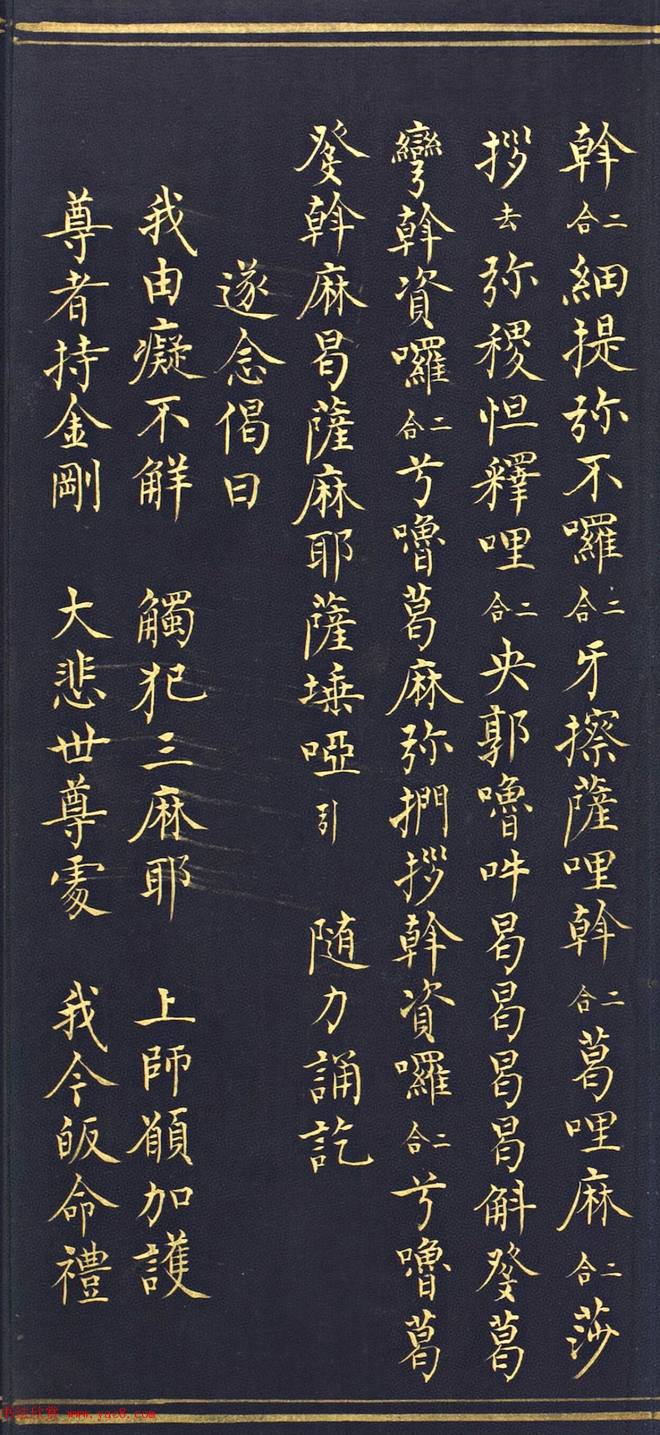 斡二合細提弥不囉二合牙擦薩哩斡二合葛哩麻二合莎
拶去弥稷怛釋哩二合央郭嚕吽曷曷曷曷斛發葛
彎斡資囉二合兮嚕葛麻弥捫拶斡資囉二合兮嚕葛
發斡麻曷薩麻耶薩埵啞引 随力誦訖
遂念偈曰
我由癡不解 觸犯三麻耶 上師願加護
尊者持金剛 大悲世尊處 我今皈命禮
书法欣赏 www.yac8.com